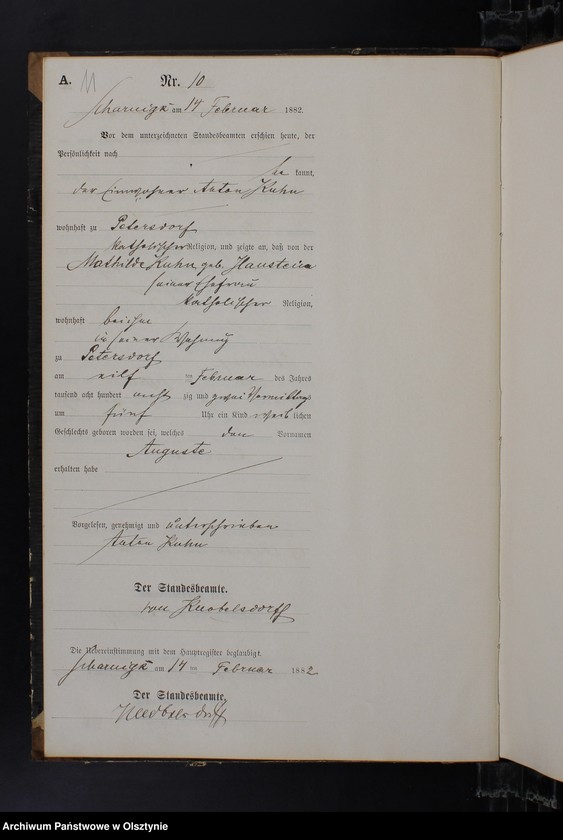 A. 11 Nr. 10
Scharnigk am 14 Februar 1882.
Vor dem unterzeichneten Standesbeamten erschien heute, der
Persönlichkeit nach
be kannt,
der Einwohner Anton Kuhn
wohnhaft zu Petersdorf
katholischer Religion, und zeigte an, daß von der
Mathilde Kuhn geb. Haustein
seiner Ehefrau
katholischer Religion,
wohnhaft bei ihm
in seiner Wohnung
zu Petersdorf
am eilf ten Februar des Jahres
tausend acht hundert acht zig und zwei Vormittags
um fünf Uhr ein Kind weib lichen
Geschlechts geboren worden sei, welches den Vornamen
Auguste
erhalten habe
Vorgelesen, genehmigt und unterschrieben
Anton Kuhn
Der Standesbeamte.
von Knobelsdorff
Die Uebereinstimmung mit dem Hauptregister beglaubigt.
Scharnigk am 14 ten Februar 1882
Der Standesbeamte.
Archiwum Państwowe w Olsztynie